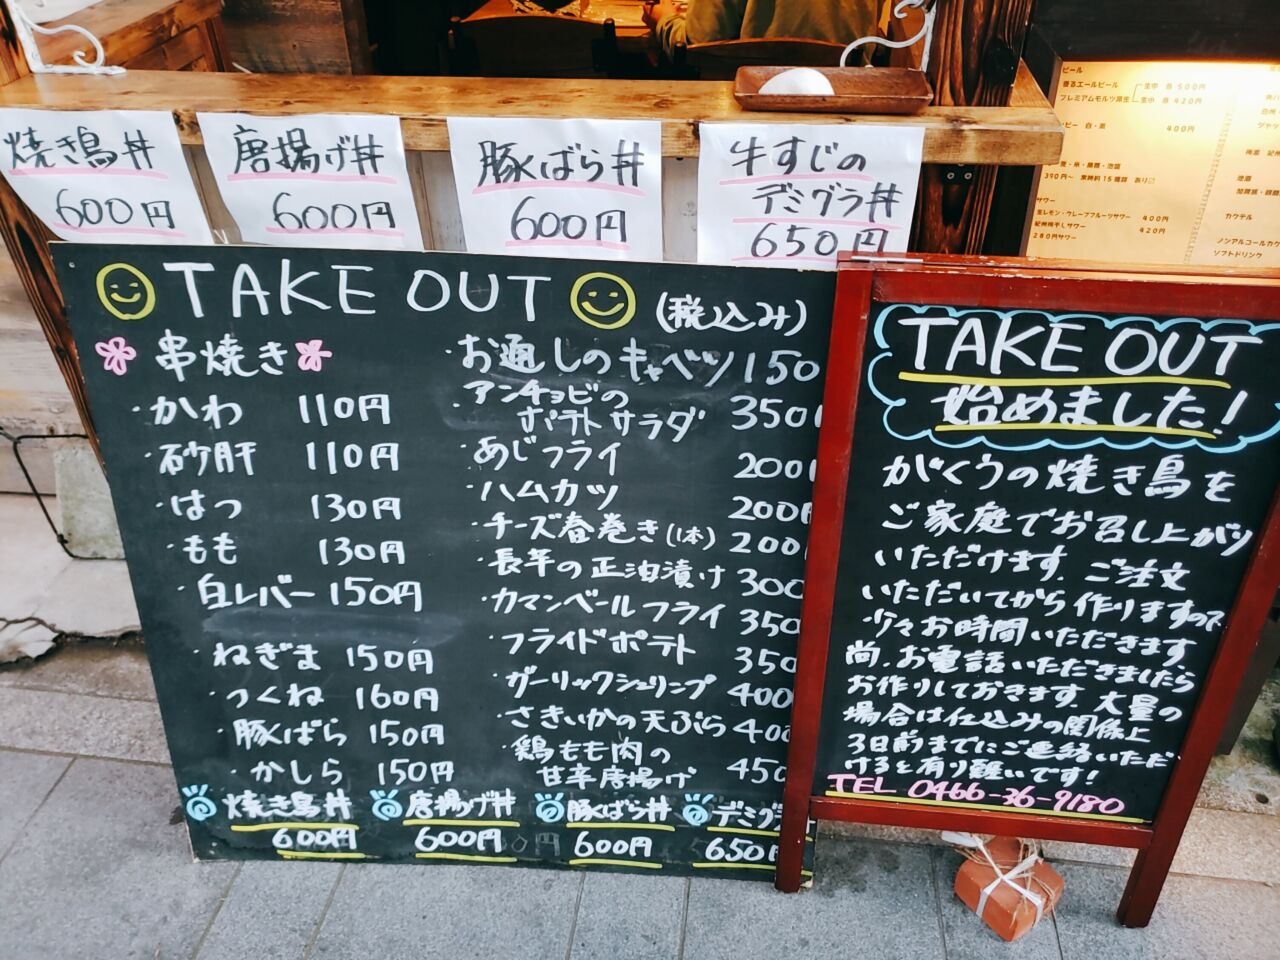 焼き鳥丼
600円
唐揚げ丼
600円
豚ばら丼
600円
牛すじの
デミグラ丼
650円
TAKE OUT
(税込み)
串焼き
・かわ 110円
・砂肝 110円
・はつ 130円
・もも 130円
・白レバー 150円
・ねぎま 150円
・つくね 160円
・豚ばら 150円
・かしら 150円
・お通しのキャベツ 150
・アンチョビの
ポテトサラダ 350
・あじフライ 200円
・ハムカツ 200円
・チーズ春巻き(1本) 200
・長芋の正油漬け 300
・カマンベールフライ 350
・フライドポテト 350
・ガーリックシュリンプ 400
・さきいかの天ぷら 400
・鶏もも肉の
甘辛唐揚げ 450
焼き鳥丼
600円
唐揚げ丼
600円
豚ばら丼
600円
デミグラ
650円
TAKE OUT
始めました!
がくうの焼き鳥を
ご家庭でお召し上がり
いただけます。ご注文
いただいてから作りますので
少々お時間いただきます
尚、お電話いただきましたら
お作りしておきます。大量の
場合は仕込みの関係上
3日前までにご連絡いただ
けると有り難いです!
TEL 0466-36-9180
ビール
香るエールビール 生中 各 500円
プレミアムモルツ 生中 各 420円
400円
サワー
生レモン・グレープフルーツサワー 400円
紀州梅干しサワー 420円
280円サワー
カクテル
ノンアルコールカク
ソフトドリンク